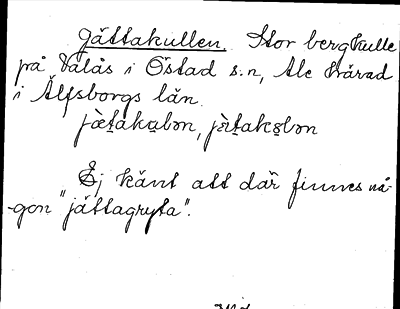 Jättakullen. Stor bergkulle
på Valås i Östad s:n, Ale härad
i Älfsborgs län.
Ej känt att där finnes nå-
gon "jättagryta".